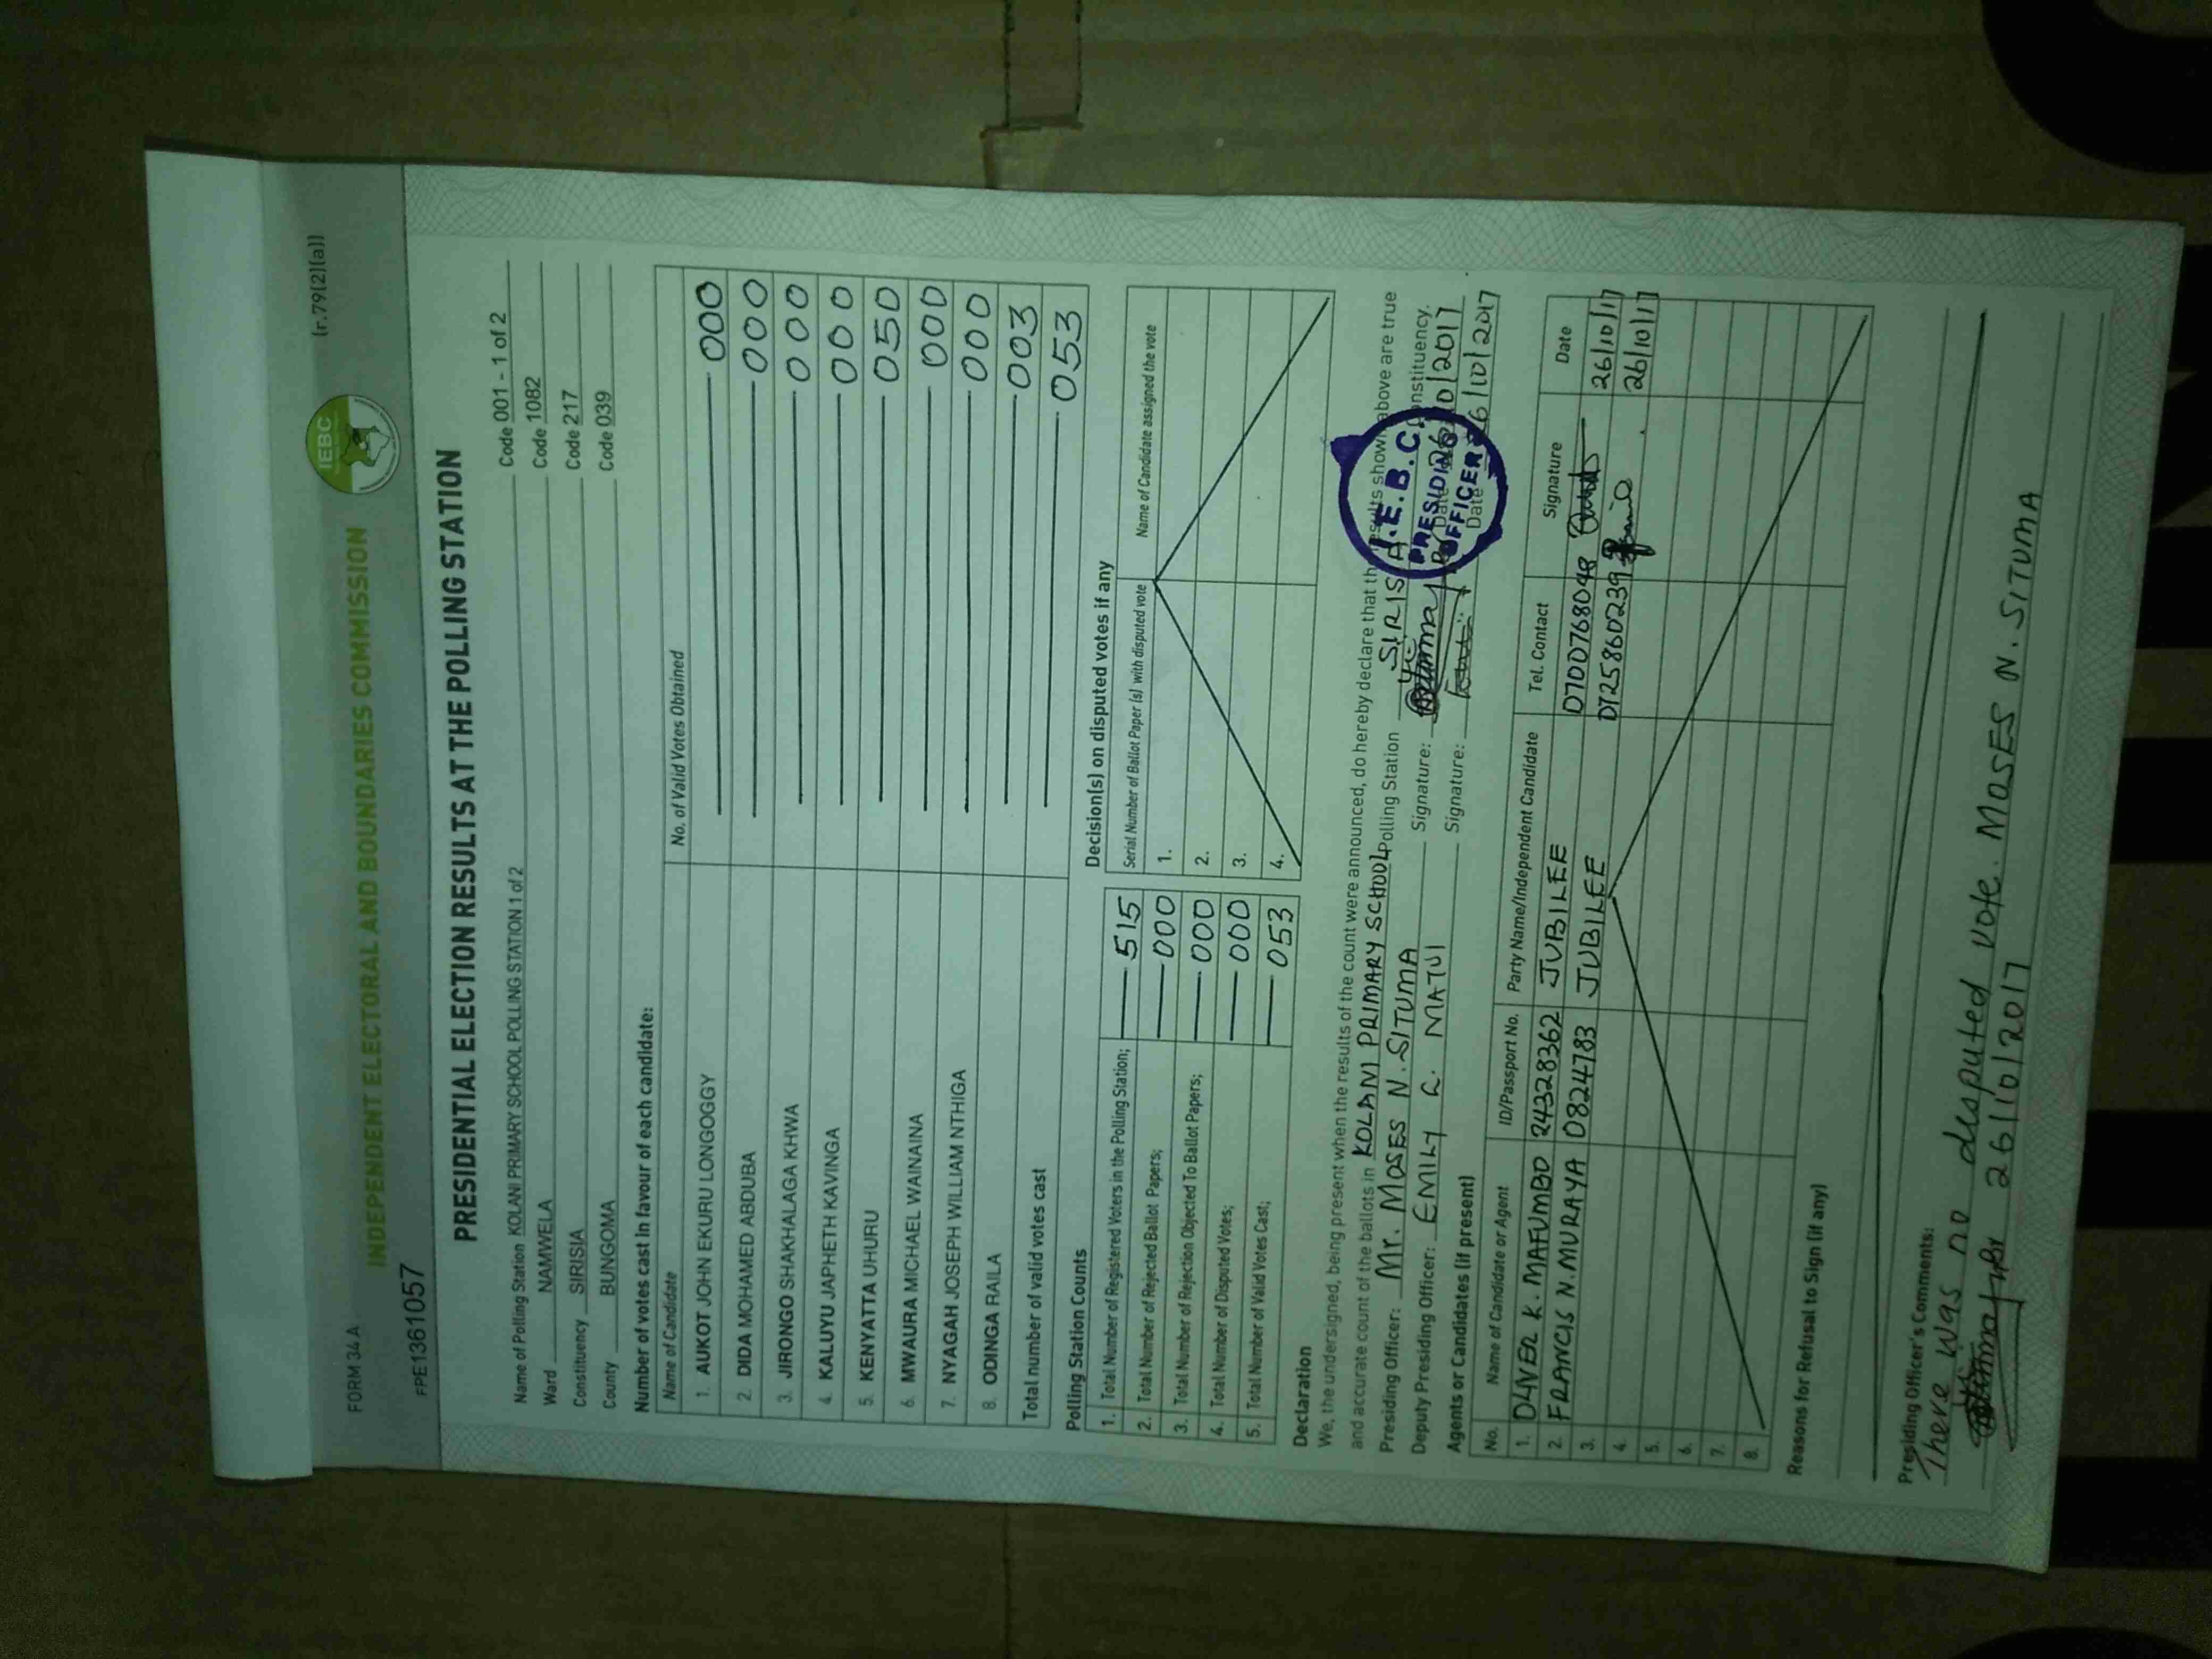 FORM 34 A
(r.79(2)(a))
IEBC
INDEPENDENT ELECTORAL AND BOUNDARIES COMMISSION
FPE1361057
PRESIDENTIAL ELECTION RESULTS AT THE POLLING STATION
Name of Polling Station KOLANI PRIMARY SCHOOL POLLING STATION 1 of 2 Code 001 - 1 of 2
Ward NAMWELA Code 1082
Constituency SIRISIA Code 217
County BUNGOMA Code 039
Number of votes cast in favour of each candidate:
Name of Candidate No. of Valid Votes Obtained
1. AUKOT JOHN EKURU LONGOGGY 000
2. DIDA MOHAMED ABDUBA 000
3. JIRONGO SHAKHALAGA KHWA 000
4. KALUYU JAPHETH KAVINGA 000
5. KENYATTA UHURU 050
6. MWAURA MICHAEL WAINAINA 000
7. NYAGAH JOSEPH WILLIAM NTHIGA 000
8. ODINGA RAILA 003
Total number of valid votes cast 053
Polling Station Counts
1. Total Number of Registered Voters in the Polling Station; 515
2. Total Number of Rejected Ballot Papers; 000
3. Total Number of Rejection Objected To Ballot Papers; 000
4. Total Number of Disputed Votes; 000
5. Total Number of Valid Votes Cast; 053
Decision(s) on disputed votes if any
Serial Number of Ballot Paper (s) with disputed vote Name of Candidate assigned the vote
1.
2.
3.
4.
Declaration
We, the undersigned, being present when the results of the count were announced, do hereby declare that the results shown above are true
and accurate count of the ballots in KOLANI PRIMARY SCHOOL Polling Station SIRISIA Constituency.
Presiding Officer: Mr. MOSES N. SITUMA Signature: Date 26/10/2017
Deputy Presiding Officer: EMILY R. MATUI Signature: Date 26/10/2017
I.E.B.C.
PRESIDING
OFFICER
Agents or Candidates (if present)
No. Name of Candidate or Agent ID/Passport No. Party Name/Independent Candidate Tel. Contact Signature Date
1. OLIVER K. MAFUMBO 24328362 JUBILEE 0700768048 26/10/17
2. FRANCIS N. MURAYA 08224783 JUBILEE 0725860239 26/10/17
3.
4.
5.
6.
7.
8.
Reasons for Refusal to Sign (if any)
Presiding Officer's Comments:
There was no disputed vote. MOSES N. SITUMA
26/10/2017